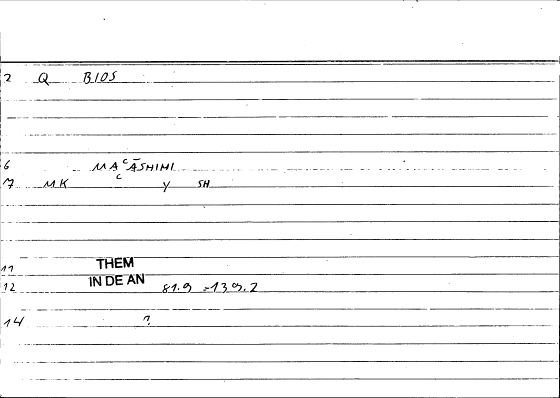 2 Q BIOS
6 MAʿĀSHIHI
7 MK Y SH
11 THEM
12 IN DE AN 81.9 - 139.2
14 ?